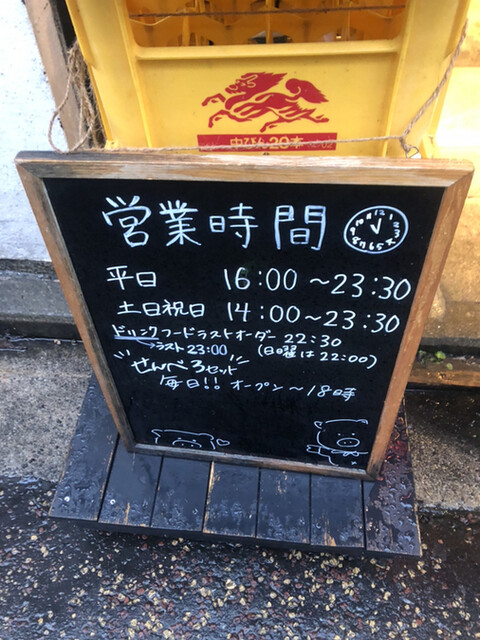 中びん20本
営業時間
平日 16:00～23:30
土日祝日 14:00～23:30
ドリンクフードラストオーダー 22:30
→ラスト 23:00 (日曜は22:00)
せんべろセット
毎日!! オープン～18時